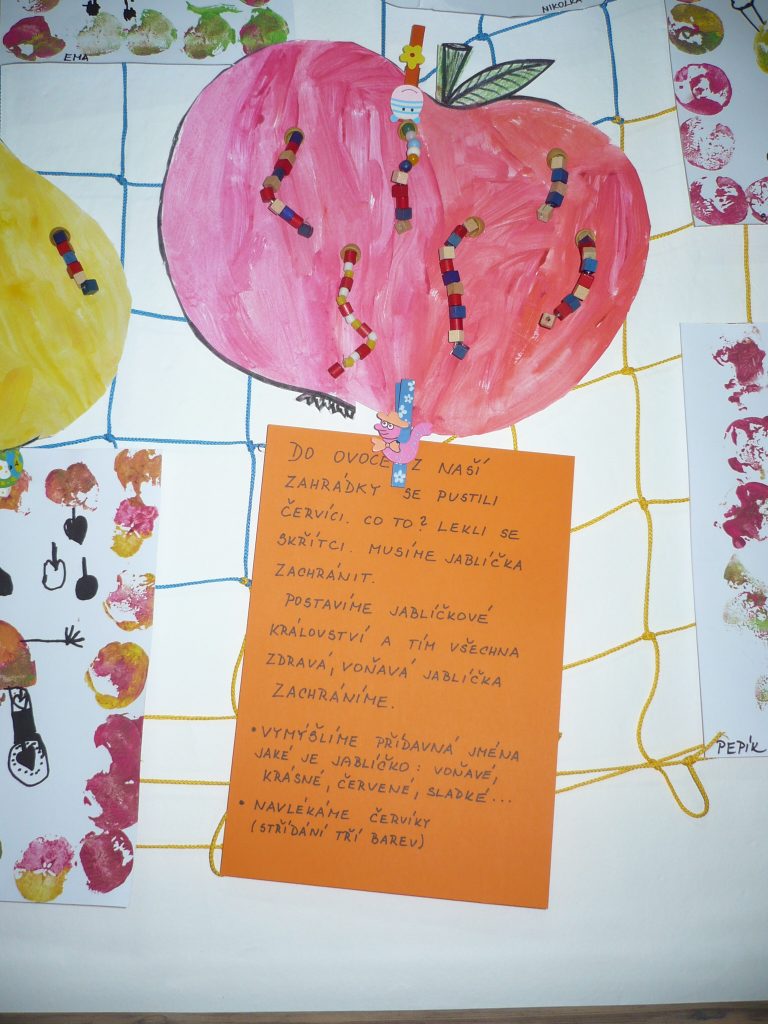 NIKOLKA
EMA
DO OVOCE Z NAŠÍ
ZAHRÁDKY SE PUSTILI
ČERVÍCI. CO TO? LEKLI SE
SKŘÍTCI. MUSÍME JABLÍČKA
ZACHRÁNIT.
POSTAVÍME JABLÍČKOVÉ
KRÁLOVSTVÍ A TÍM VŠECHNA
ZDRAVÁ, VOŇAVÁ JABLÍČKA
ZACHRÁNÍME.
• VYMÝŠLÍME PŘÍDAVNÁ JMÉNA
JAKÉ JE JABLÍČKO: VOŇAVÉ,
KRÁSNÉ, ČERVENÉ, SLADKÉ...
• NAVLÉKÁME ČERVÍKY
(STŘÍDÁNÍ TŘÍ BAREV)
PEPÍK